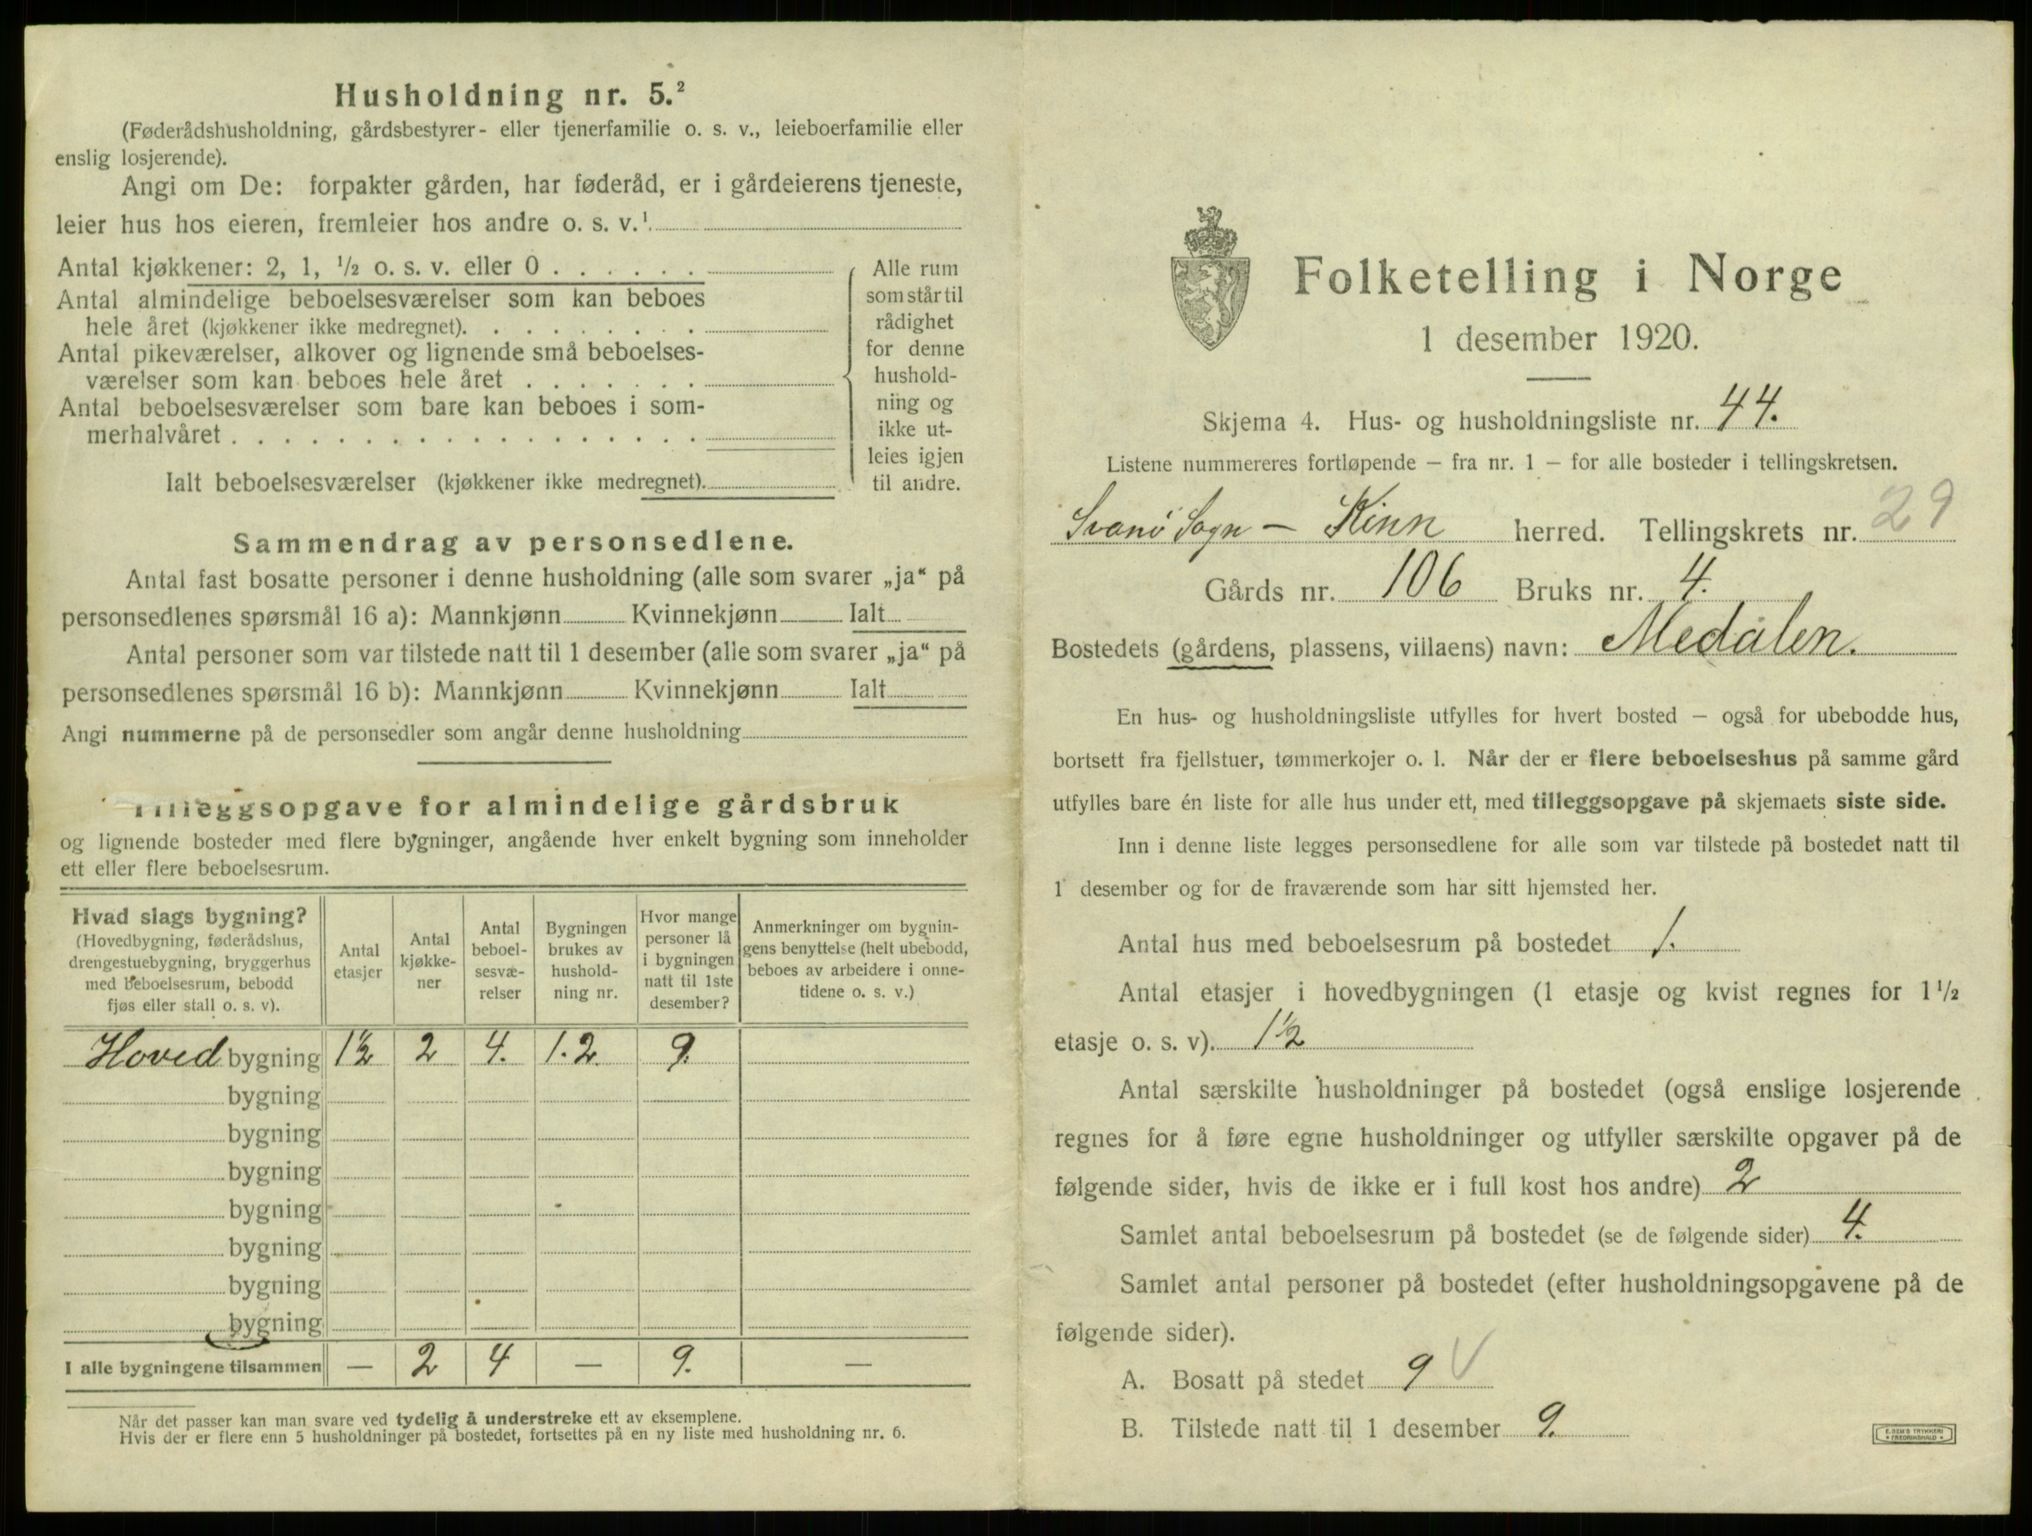 Husholdning nr. 5.²
(Føderådshusholdning, gårdsbestyrer- eller tjenerfamilie o. s. v., leieboerfamilie eller
enslig losjerende).
Angi om De: forpakter gården, har føderåd, er i gårdeierens tjeneste,
leier hus hos eieren, fremleier hos andre o. s. v.¹
Antal kjøkkener: 2, 1, ½ o. s. v. eller 0 . . . . . .
Antal almindelige beboelsesværelser som kan beboes
hele året (kjøkkener ikke medregnet). . . . . . . . .
Antal pikeværelser, alkover og lignende små beboelses-
værelser som kan beboes hele året . . . . . . .
Antal beboelsesværelser som bare kan beboes i som-
merhalvåret . . . . . . . . . . . . . . . . . .
Ialt beboelsesværelser (kjøkkener ikke medregnet).
Alle rum
som står til
rådighet
for denne
hushold-
ning og
ikke ut-
leies igjen
til andre.
Sammendrag av personsedlene.
Antal fast bosatte personer i denne husholdning (alle som svarer „ja“ på
personsedlenes spørsmål 16 a): Mannkjønn Kvinnekjønn Ialt
Antal personer som var tilstede natt til 1 desember (alle som svarer „ja“ på
personsedlenes spørsmål 16 b): Mannkjønn Kvinnekjønn Ialt
Angi nummerne på de personsedler som angår denne husholdning
Tilleggsopgave for almindelige gårdsbruk
og lignende bosteder med flere bygninger, angående hver enkelt bygning som inneholder
ett eller flere beboelsesrum.
Hvad slags bygning?
(Hovedbygning, føderådshus,
drengestuebygning, bryggerhus
med beboelsesrum, bebodd
fjøs eller stall o. s. v).
Antal
etasjer
Antal
kjøkke-
ner
Antal
beboel-
sesvæ-
relser
Bygningen
brukes av
hushold-
ning nr.
Hvor mange
personer lå
i bygningen
natt til 1ste
desember?
Anmerkninger om bygnin-
gens benyttelse (helt ubebodd,
beboes av arbeidere i onne-
tidene o. s. v.)
Hoved bygning 1½ 2 4. 1. 2. 9.
bygning
bygning
bygning
bygning
bygning
bygning
bygning
I alle bygningene tilsammen — 2 4 — 9. —
Når det passer kan man svare ved tydelig å understreke ett av eksemplene.
Hvis der er flere enn 5 husholdninger på bostedet, fortsettes på en ny liste med husholdning nr. 6.
Folketelling i Norge
1 desember 1920.
Skjema 4. Hus- og husholdningsliste nr. 44.
Listene nummereres fortløpende – fra nr. 1 – for alle bosteder i tellingskretsen.
Svanö Sogn – Kinn herred. Tellingskrets nr. 29
Gårds nr. 106 Bruks nr. 4.
Bostedets (gårdens, plassens, villaens) navn: Medalen.
En hus- og husholdningsliste utfylles for hvert bosted – også for ubebodde hus,
bortsett fra fjellstuer, tømmerkojer o. l. Når der er flere beboelseshus på samme gård
utfylles bare én liste for alle hus under ett, med tilleggsopgave på skjemaets siste side.
Inn i denne liste legges personsedlene for alle som var tilstede på bostedet natt til
1 desember og for de fraværende som har sitt hjemsted her.
Antal hus med beboelsesrum på bostedet 1.
Antal etasjer i hovedbygningen (1 etasje og kvist regnes for 1½
etasje o. s. v). 1½
Antal særskilte husholdninger på bostedet (også enslige losjerende
regnes for å føre egne husholdninger og utfyller særskilte opgaver på de
følgende sider, hvis de ikke er i full kost hos andre) 2
Samlet antal beboelsesrum på bostedet (se de følgende sider) 4.
Samlet antal personer på bostedet (efter husholdningsopgavene på de
følgende sider).
A. Bosatt på stedet 9 V
B. Tilstede natt til 1 desember 9.
E. SEM'S TRYKKERI
• FREDRIKSHALD •